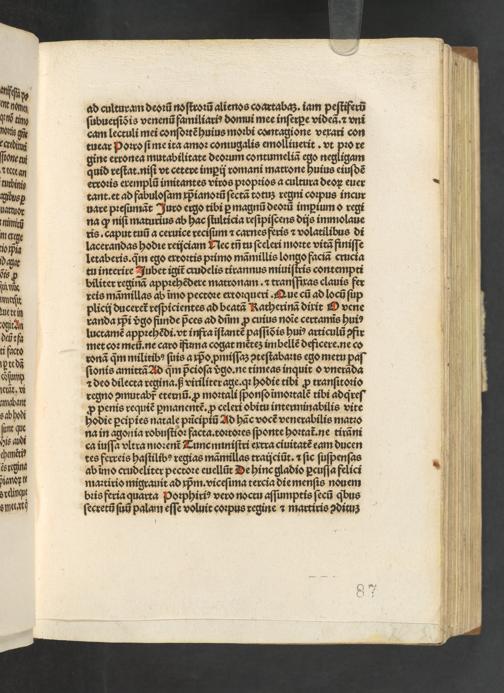 ad culturam deoꝝ nostroꝝ alienos coartabaꝫ. iam pestiferū
subuersiōis venenū familiariꝰ domui mee inserꝑe videā. ⁊ vni
cam lectuli mei consortē huius morbi contagione vexari con
tuear Porro si me ita amor coniugalis emollierit. vt pro re
gine erronea mutabilitate deorum contumeliā ego negligam
quid restat. nisi vt cetere impij romani matrone huius eiusdē
erroris exemplū imitantes viros proprios a cultura deoꝝ euer
tant. et ad fabulosam xp̄ianoꝝ sectā totuꝫ regni corpus incur
uare presumāt Juro ergo tibi ꝑ magnū deoꝝ imperiū o regi
na ꝙ nisi maturius ab hac stulticia resipiscens dijs immolaue
ris. caput tuū a ceruice recisum ⁊ carnes feris ⁊ volatilibus di
lacerandas hodie reijciam Nec tn̄ tu sceleri morte vitā finisse
letaberis. qm̄ ego extortis primo māmillis longo faciā crucia
tu interire Jubet igit̄ crudelis tirannus ministris contempti
biliter reginā apprehēdere matronam. ⁊ transfixas clauis fer
reis māmillas ab imo pectore extorqueri. Que cū ad locū sup
plicij duceret̄ respicientes ad beatā Katherinā dixit O vene
randa xp̄i v̓go funde p̄ces ad dūm ꝓ cuius noīe certamē huiꝰ
luctaminis apprehēdi. vt infra īstantē passiōis huiꝰ articulū ꝯfir
met cor meū. ne caro īfirma cogat mētez imbellē deficere. ne co
ronā qm̄ militibꝰ suis a xp̄o ꝓmissaꝫ ꝓtestabaris ego metu pas
sionis amittā Ad qm̄ p̄ciosa v̓go. ne timeas inquit o v̓nerāda
⁊ deo dilecta regina. sꝫ viriliter age. qꝛ hodie tibi ꝓ transitorio
regno ꝯmutabit̄ eternū. ꝓ mortali sponso īmortalē tibi adq̄res
ꝓ penis requiē ꝑmanentē. ꝓ celeri obitu interminabilis vite
hodie p̄cipies natale principiū Ad hāc vocē venerabilis matro
na in agonia robustior facta. tortores sponte hortat̄. ne tirāni
ca iussa vltra morent̄ Tunc ministri extra ciuitatē eam ducen
tes ferreis hastilibꝰ regias māmillas traijciūt. ⁊ sic suspensas
ab imo crudeliter pectore euellūt De hinc gladio ꝑcussa felici
martirio migrauit ad xp̄m. vicesima tercia die mensis nouem
bris feria quarta Porphiriꝰ vero noctu assumptis secū qͥbus
secretū suū palam esse voluit corpus regine ⁊ martiris ꝯdituꝫ
87